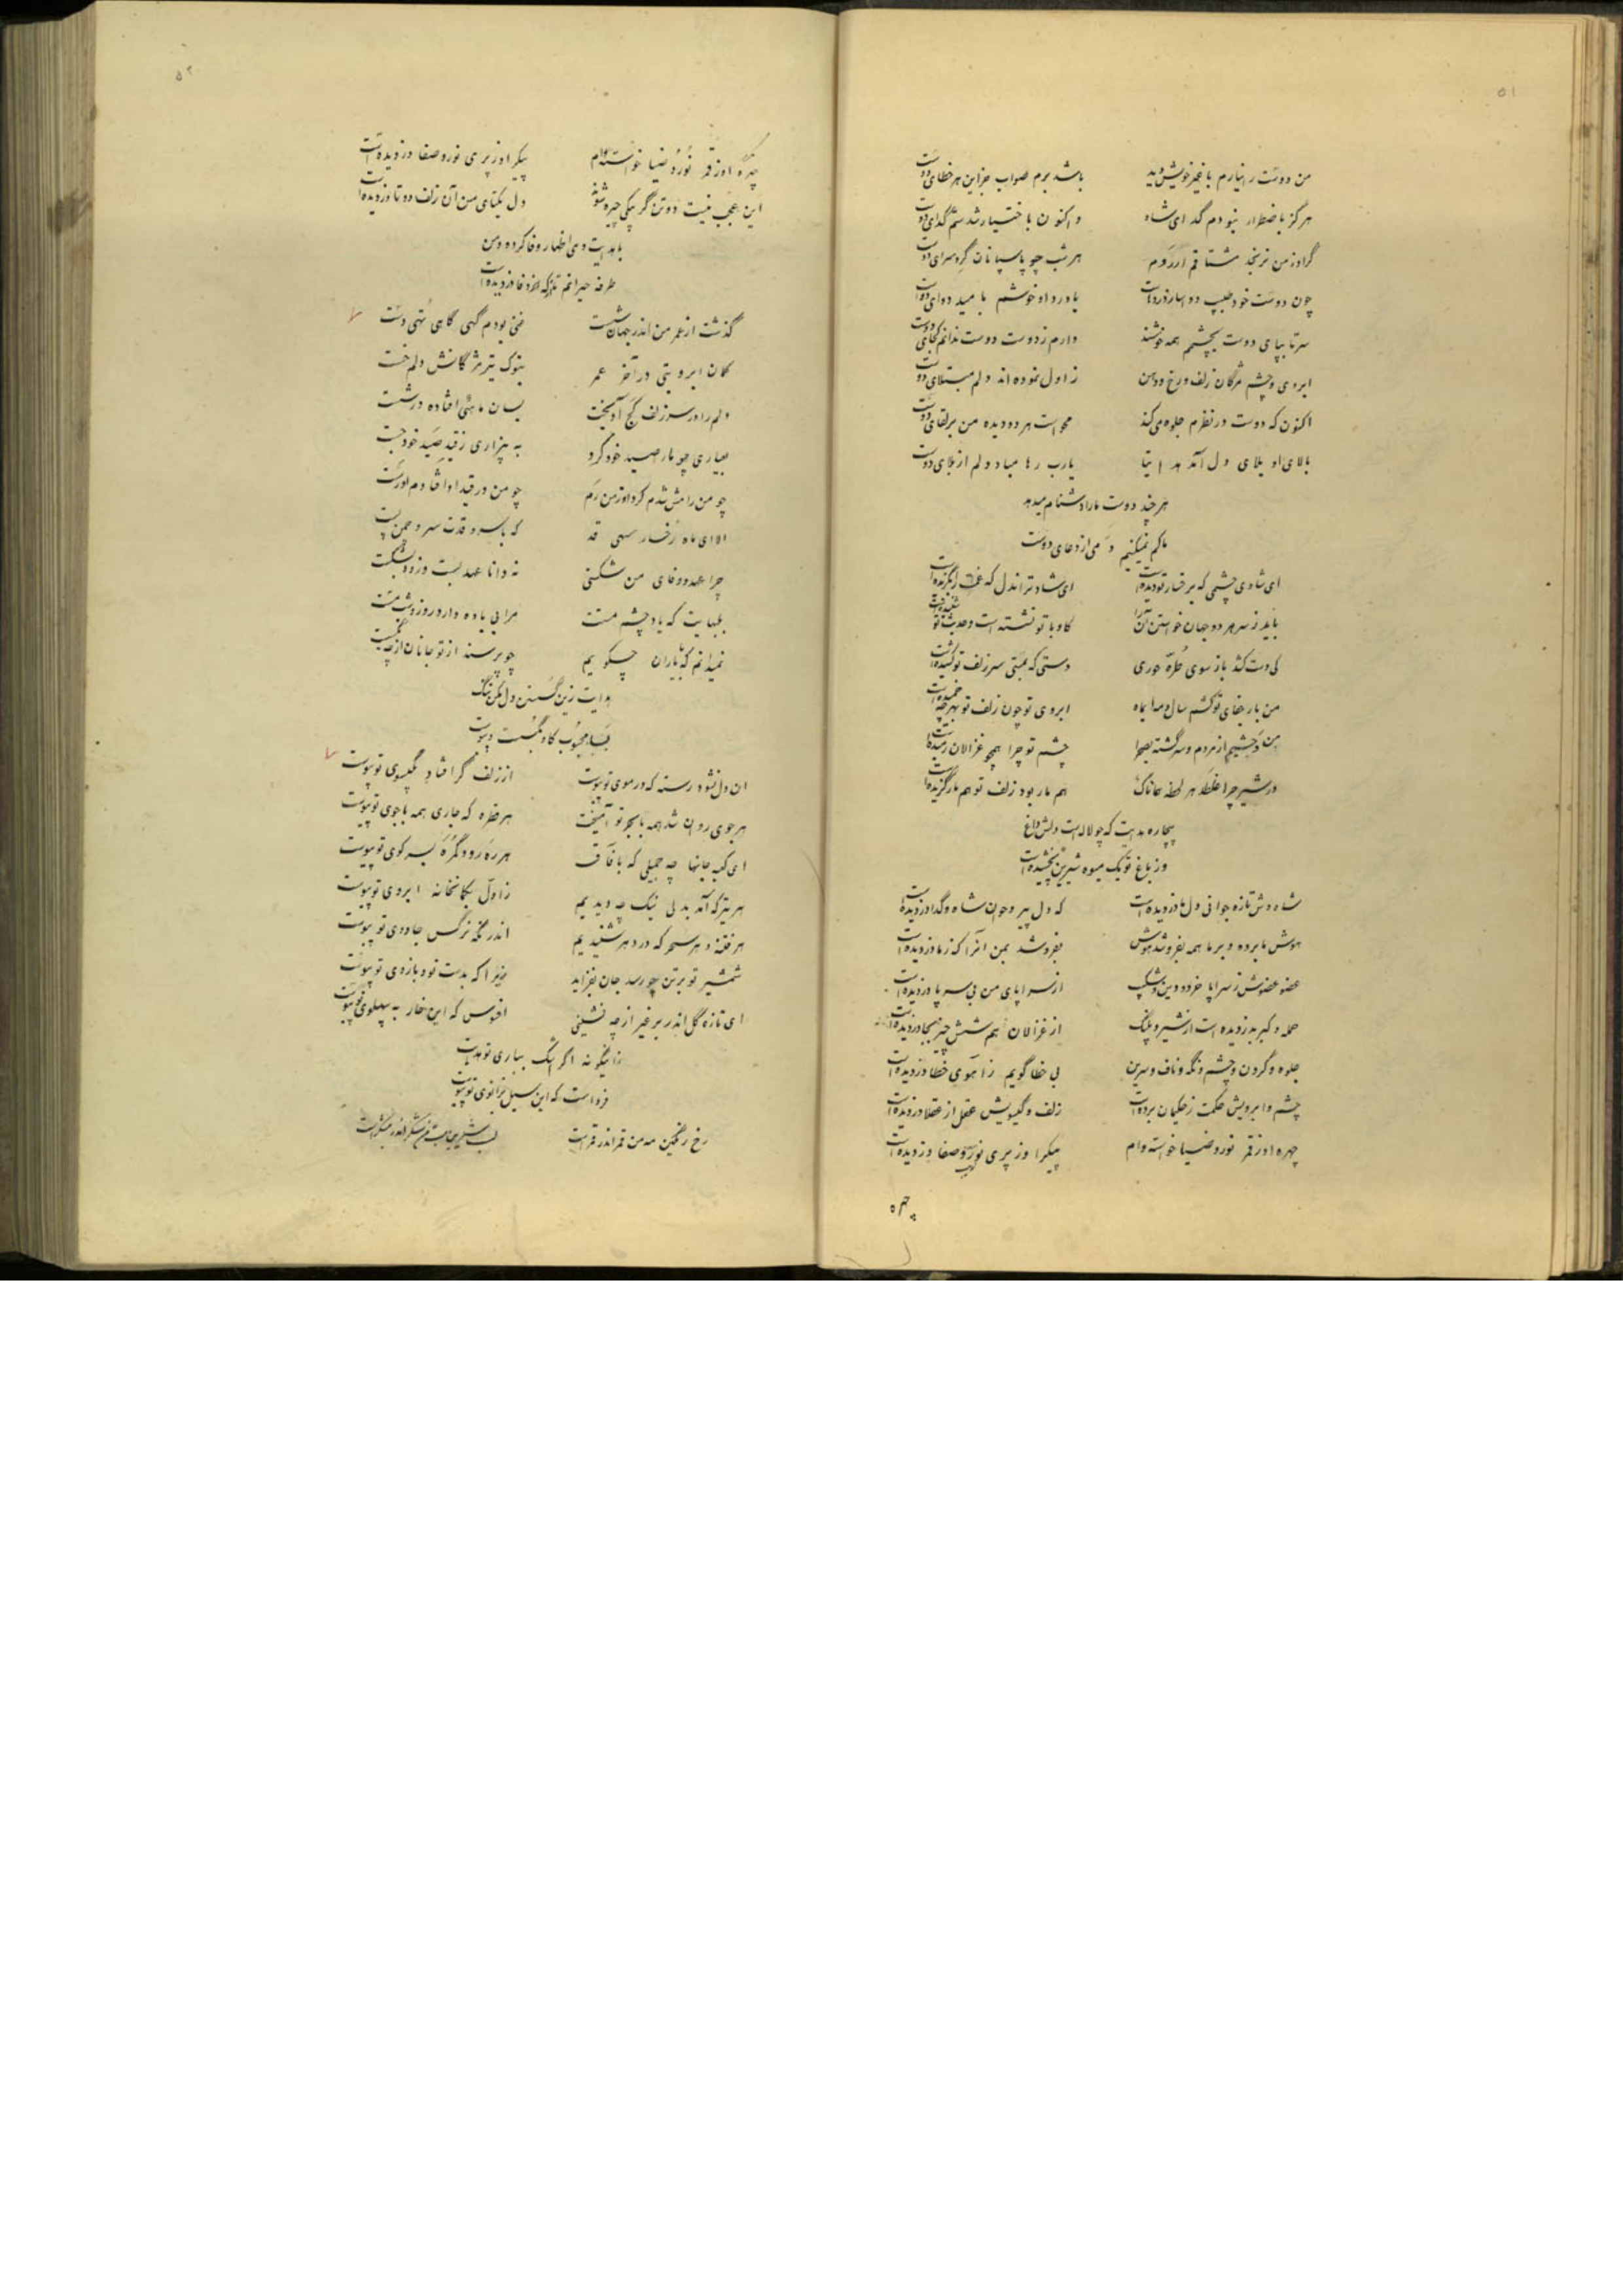 ۵۱
من دوست ندارم با غیر خویش دید باشد برم صواب جز این هر خطای دوست
هرگز باضطرار نبودم گدای شاه واکنون باختیار شدستم گدای دوست
گر او ز من نرنجد مشتاقم هر شب چو پاسبانان گرد سرای دوست
چون دوست خود طبیب دو با درد او خوشم بامید دوای دوست
سر تا بپای دوست بچشمم همه خوشند دارم ز دوست دوست ندانم کجای دوست
ابروی و چشم مژگان زلف و رخ و دهن ز اول نموده اند دلم مبتلای دوست
اکنون که دوست در نظرم جلوه میکند محو است هر دو دیده من بر لقای دوست
بالای او بلای دل آمد یارب رها مباد دلم از بلای دوست
هر چند دوست ما را دشنام میدهد
ما کم نمیکنیم دمی از دعای دوست
ای شادی چشمی که بر خسار تو دیده است ای شاد تر اندل که غمت برگزیده است
باید ز سر هر دو جهان خواستن آنرا کاو با تو نشسته است و حدیث تو شنیده است
کی دست کشد باز سوی طره حوری دستی که بمستی سر زلف تو کشیده است
من بار جفای تو کشم سال و مه اما ابروی تو چون زلف تو بهر چه خمیده است
من وحشیم از مردم و سرگشته بصحرا چشم تو چرا همچو غزالان رمیده است
در شیر چرا غلطد هر لحظه همانا هم مار بود زلف تو هم مار گزیده است
بیچاره هدایت که چو لاله است دلش داغ
وز باغ تو یک میوه شیرین نچشیده است
شاه وش تازه جوانی دل ما دزدیده است که دل پیر و جوان شاه و گدا دزدیده است
هوش ما برده و بر ما همه بفروشد هوش بفروشد بمن آنرا که ز ما دزدیده است
عضو عضوش ز سراپا خرد و دین و شکیب از سراپای من بی سر و پا دزدیده است
حمله و کبر بدزدیده است از شیر و پلنگ از غزالان هم شش چیز بجا دزدیده است
جلوه و گردن و چشم و نگه و ناف و سرین بی خطا گویم ز آهوی خطا دزدیده است
چشم و ابرویش حکمت ز حکیمان برده است زلف و گیسویش عقل از عقلا دزدیده است
چهره او ز قمر نور و ضیا خواسته وام پیکر او ز پری نور و صفا دزدیده است
چهره
۵۲
چهره او ز قمر نور و ضیا خواسته وام پیکر او ز پری نور و صفا دزدیده است
این عجب نیست دو تن گر بیکی چیره شوند دل یکتای من آن زلف دو تا دزدیده است
با هدایت وی اظهار وفا کرده و من
طرفه حیرانم تا از که وفا دزدیده است
گذشت از عمر من اندر جهان شصت غنی بودم گهی گاهی تهی دست
کمان ابرو بتی در آخر عمر بنوک تیر مژگانش دلم خست
دلم را در سر زلف کج آویخت بسان ماهئی افتاده در شست
بیاری چو مار صید خود کرد به بیزاری ز قید صید خود جست
چو من رامش شدم کرد او ز من رم چو من در قید او افتادم او رست
الا ای ماه رخسار سهی قد که با سرو قدت سرو چمن پست
چرا عهد و وفای من شکستی نه دانا عهد بست و زود بشکست
بلبهایت که یاد چشم مستت مرا بی باده دارد روز و شب مست
نمیدانم که با یاران چه گویم چو پرسند از تو جانان از چه بگسست
هدایت زین گسستن دل مکن تنگ
بسا محبوب کاو بگسست و پیوست
ان دل نشود رسته که در موی تو پیوست از زلف گر افتاد بگیسوی تو پیوست
هر جوی روان شد همه با بحر تو آمیخت هر قطره که جاری همه با جوی تو پیوست
ای کعبه جانها چه جمیلی که بافاق هر ره رو و گمره بسر کوی تو پیوست
هر تیر که آمد بدلی نیک چو دیدیم ز اول بکمانخانه ابروی تو پیوست
هر فتنه و هر سحر که در دهر شنیدیم اندر نگه نرگس جادوی تو پیوست
شمشیر تو بر تن چو رسد جان بفزاید زیرا که بدست تو و بازوی تو پیوست
ای تازه گل اندر بر غیر از چه نشینی افسوس که این خار به پهلوی تو پیوست
زاینگونه اگر اشک بباری تو هدایت
فرداست که این سیل بزانوی تو پیوست
رخ رنگین مه من قمر اندر قمر است لب شیرین بت من شکر اندر شکر است